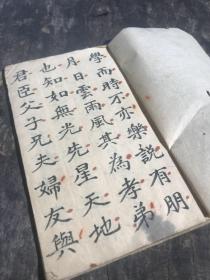 學而時不亦樂說有朋
月日雲雨風其為孝弟
也知如無光先星天地
君臣父子兄夫婦友與